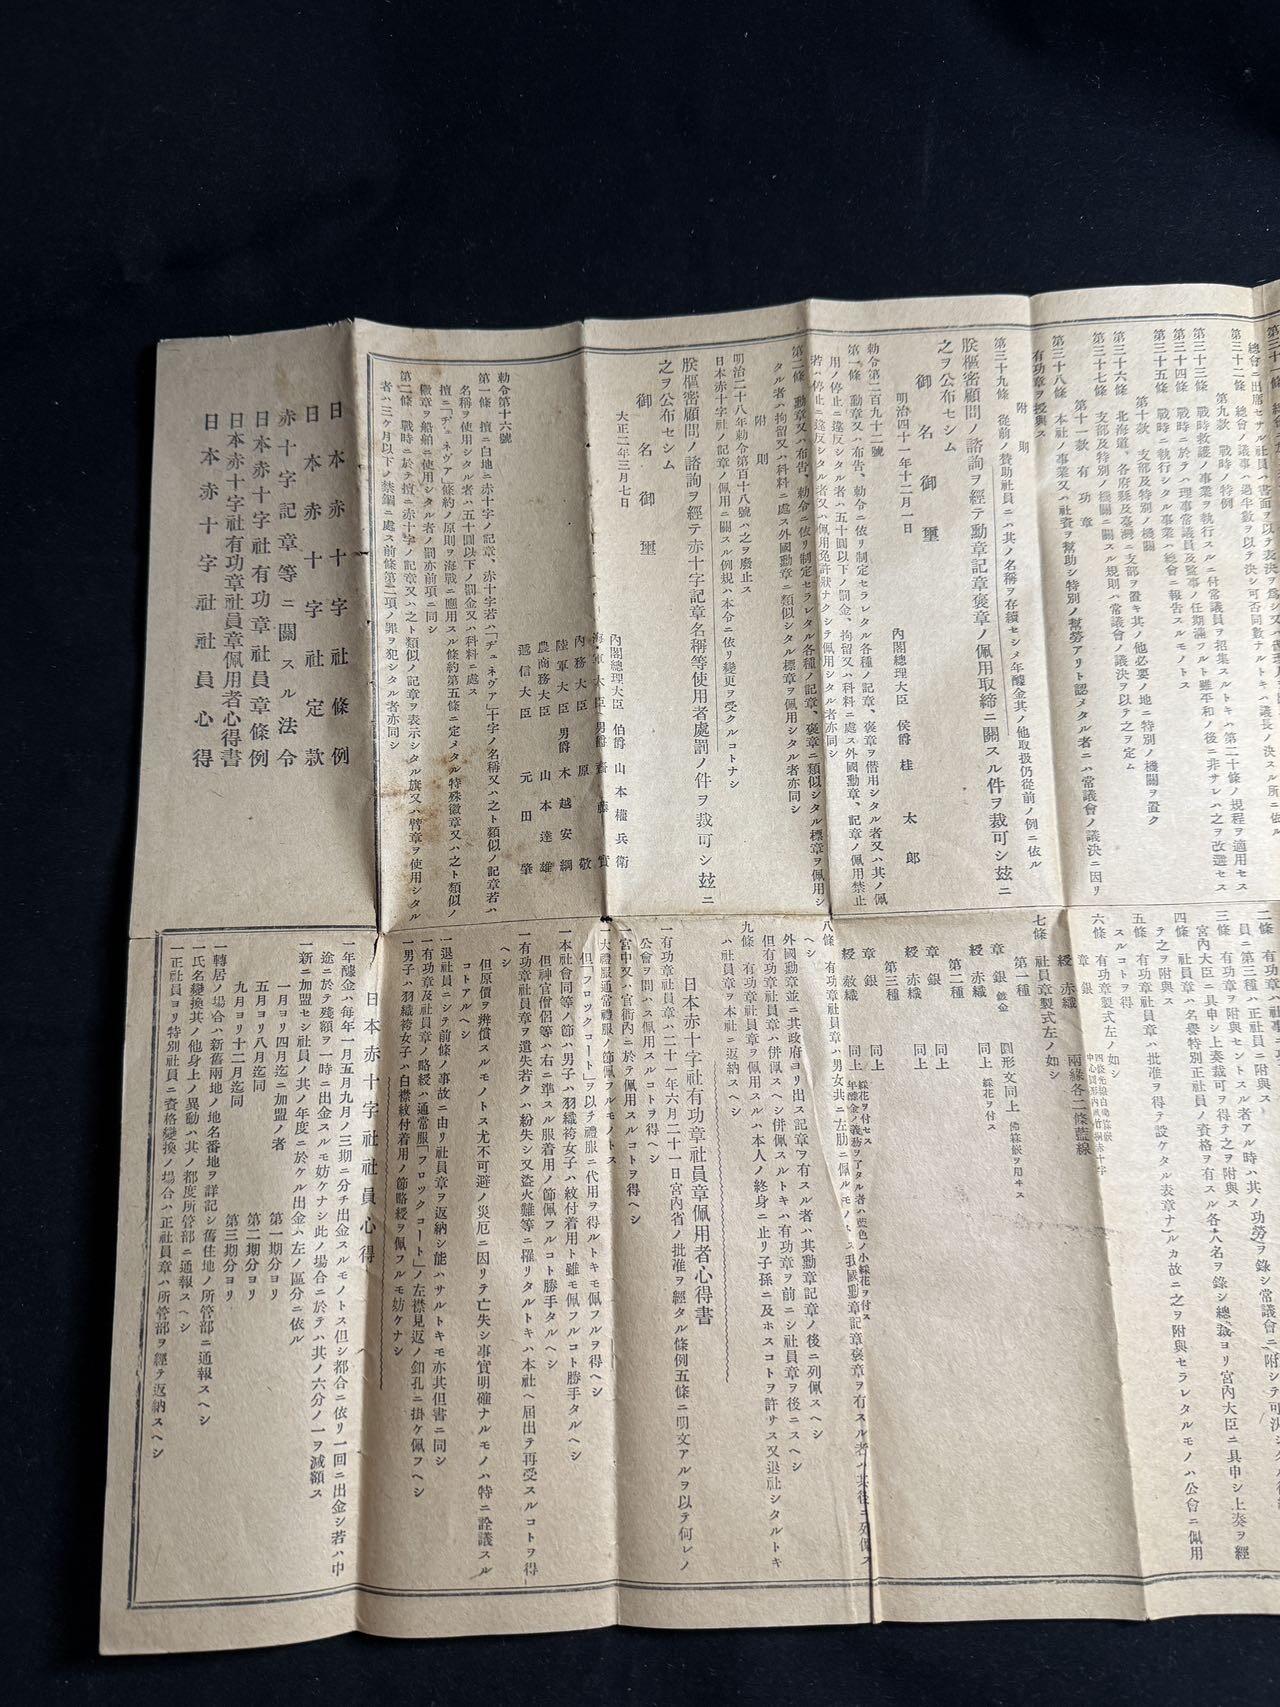 第三十二條 總會ノ議事ハ過半數ヲ以テ決シ可否同數ナルトキハ議長ノ決スル所ニ依ル
第九款 戰時ノ特例
第三十三條 戰時救護ノ事業ヲ執行スルニ付常議員ヲ招集スルトキハ第二十條ノ規程ヲ適用セス
第三十四條 戰時ニ於テハ理事常議員及監事ノ任期滿ツルト雖平和ノ後ニ非サレハ之ヲ改選セス
第三十五條 戰時ニ執行シタル事業ハ總會ニ報告スルモノトス
第十款 支部及特別ノ機關
第三十六條 北海道、各府縣及臺灣ニ支部ヲ置キ其ノ他必要ノ地ニ特別ノ機關ヲ置ク
第三十七條 支部及特別ノ機關ニ關スル規則ハ常議會ノ議決ヲ以テ之ヲ定ム
第十一款 有功章
第三十八條 本社ノ事業又ハ社資ヲ幇助シ特別ノ幇勞アリト認メタル者ニハ常議會ノ議決ニ因リ
有功章ヲ授與ス
附則
第三十九條 從前ノ贊助社員ニハ其ノ名稱ヲ存續セシメ年醵金其ノ他取扱仍從前ノ例ニ依ル
朕樞密顧問ノ諮詢ヲ經テ勳章記章褒章ノ佩用取締ニ關スル件ヲ裁可シ玆ニ
之ヲ公布セシム
御名御璽
明治四十一年十二月一日
內閣總理大臣 侯爵 桂太郎
勅令第二百九十二號
第一條 勳章又ハ布告、勅令ニ依リ制定セラレタル各種ノ記章、褒章ヲ僭用シタル者又ハ其ノ佩
用ノ停止ニ違反シタル者ハ五十圓以下ノ罰金、拘留又ハ科料ニ處ス外國勳章、記章ノ佩用禁止
若ハ停止ニ違反シタル者又ハ佩用免許狀ナクシテ佩用シタル者亦同シ
第二條 勳章又ハ布告、勅令ニ依リ制定セラレタル各種ノ記章、褒章ニ類似シタル標章ヲ佩用シ
タル者ハ拘留又ハ科料ニ處ス外國勳章ニ類似シタル標章ヲ佩用シタル者亦同シ
附則
明治二十八年勅令第百十八號ハ之ヲ廢止ス
日本赤十字社ノ記章ノ佩用ニ關スル例規ハ本令ニ依リ變更ヲ受クルコトナシ
朕樞密顧問ノ諮詢ヲ經テ赤十字記章名稱等使用者處罰ノ件ヲ裁可シ玆ニ
之ヲ公布セシム
御名御璽
大正二年三月七日
內閣總理大臣 伯爵 山本權兵衛
海軍大臣 男爵 齋藤實
內務大臣 原敬
陸軍大臣 男爵 木越安綱
農商務大臣 山本達雄
遞信大臣 元田肇
勅令第十六號
第一條 擅ニ白地ニ赤十字ノ記章、赤十字若ハ「ヂュネヴァ」十字ノ名稱又ハ之ト類似ノ記章若ハ
名稱ヲ使用シタル者ハ五十圓以下ノ罰金又ハ科料ニ處ス
擅ニ「ヂュネヴァ」條約ノ原則ヲ海戰ニ應用スル條約第五條ニ定メタル特殊徽章又ハ之ト類似ノ
徽章ヲ船舶ニ使用シタル者ノ罰亦前項ニ同シ
第二條 戰時ニ於テ擅ニ赤十字ノ記章又ハ之ト類似ノ記章ヲ表示シタル旗又ハ臂章ヲ使用シタル
者ハ三ケ月以下ノ禁錮ニ處ス前條第二項ノ罪ヲ犯シタル者亦同シ
日本赤十字社條例
日本赤十字社定款
赤十字記章等ニ關スル法令
日本赤十字社有功章社員章條例
日本赤十字社有功章社員章佩用者心得書
日本赤十字社社員心得
員ニ第三種ハ正社員ニ附與ス
三條 有功章ヲ附與セントスル者アル時ハ其ノ功勞ヲ錄シ常議會ニ附シテ可決シ
宮內大臣ニ具申シ上奏裁可ヲ得テ之ヲ附與ス
四條 社員章ハ名譽特別正社員ノ資格ヲ有スル各人名ヲ錄シ總裁ヨリ宮內大臣ニ具申シ上奏ヲ經
テ之ヲ附與ス
五條 有功章社員章ハ批准ヲ得テ設ケタル表章ナルカ故ニ之ヲ附與セラレタルモノハ公會ニ佩用
スルコトヲ得
六條 有功章製式左ノ如シ
章 銀
綬 赤織 兩緣各二條藍線
七條 社員章製式左ノ如シ
第一種
章 銀 鍍金 圓形文同上
綬 赤織 同上 綵花ヲ付ス
第二種
章 銀 同上
綬 赤織 同上
第三種
章 銀 同上 綵花ヲ付セス
綬 赤織 同上 年醵金ノ義務ヲ了タル者ハ藍色ノ小綵花ヲ付ス
八條 有功章社員章ハ男女共ニ左肋ニ佩ルモノトス我國勳章記章褒章ヲ有スル者ハ其後ニ列佩ス
ヘシ
外國勳章並ニ其政府ヨリ出ス記章ヲ有スル者ハ其勳章記章ノ後ニ列佩スヘシ
但有功章社員章ハ併佩スヘシ併佩スルトキハ有功章ヲ前ニシ社員章ヲ後ニスヘシ
九條 有功章社員章ヲ佩用スルハ本人ノ終身ニ止リ子孫ニ及ホスコトヲ許サス又退社シタルトキ
ハ社員章ヲ本社ニ返納スヘシ
日本赤十字社有功章社員章佩用者心得書
一有功章社員章ハ二十一年六月二十一日宮內省ノ批准ヲ經タル條例五條ニ明文アルヲ以テ何レノ
公會ヲ問ハス佩用スルコトヲ得ヘシ
一宮中又ハ官衙內ニ於テ佩用スルコトヲ得ヘシ
一大禮服通常禮服ノ節佩フルモノトス
但「フロックコート」ヲ以テ禮服ニ代用ヲ得ルトキモ佩フルヲ得ヘシ
一本社會同等ノ節ハ男子ハ羽織袴女子ハ紋付着用ト雖モ佩フルコト勝手タルヘシ
但神官僧侶等ハ右ニ準スル服着用ノ節佩フルコト勝手タルヘシ
一有功章社員章ヲ遺失若クハ紛失シ又盜火難等ニ罹リタルトキハ本社ヘ届出テ再受スルコトヲ得
ヘシ
但原價ヲ辨償スルモノトス尤不可避ノ災厄ニ因リテ亡失シ事實明確ナルモノハ特ニ詮議スル
コトアルヘシ
一退社員ニシテ前條ノ事故ニ由リ社員章ヲ返納シ能ハサルトキモ亦其但書ニ同シ
一有功章及社員章ノ略綬ハ通常服「フロックコート」ノ左襟見返ノ釦孔ニ掛ケ佩フヘシ
一男子ハ羽織袴女子ハ白襟紋付着用ノ節略綬ヲ佩フルモ妨ケナシ
日本赤十字社社員心得
一年醵金ハ每年一月五月九月ノ三期ニ分チ出金スルモノトス但シ都合ニ依リ一回ニ出金シ若ハ中
途ニ於テ殘額ヲ一時ニ出金スルモ妨ケナシ此ノ場合ニ於テハ其ノ六分ノ一ヲ減額ス
一新ニ加盟セシ社員ノ其ノ年度ニ於ケル出金ハ左ノ區分ニ依ル
一月ヨリ四月迄ニ加盟ノ者 第一期分ヨリ
五月ヨリ八月迄同 第二期分ヨリ
九月ヨリ十二月迄同 第三期分ヨリ
一轉居ノ場合ハ新舊兩地ノ地名番地ヲ詳記シ舊住地ノ所管部ニ通報スヘシ
一氏名變換其ノ他身上ノ異動ハ其ノ都度所管部ニ通報スヘシ
一正社員ヨリ特別社員ニ資格變換ノ場合ハ正社員章ハ所管部ヲ經テ返納スヘシ